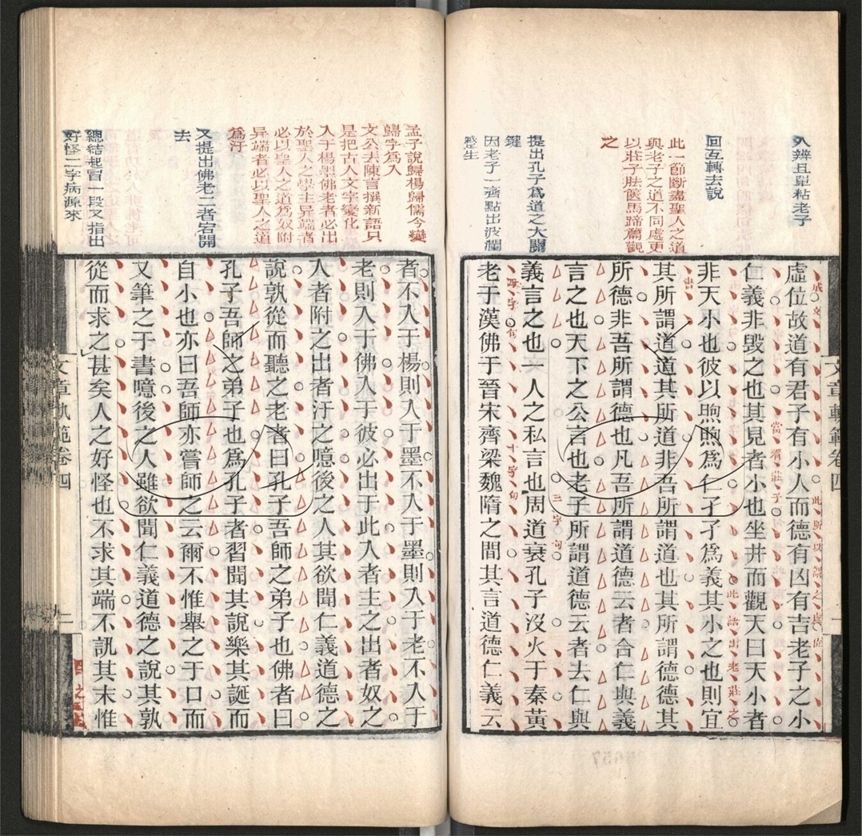 入辨且單粘老子
回互轉去說
此一節斷盡聖人之道
與老子之道不同處更
以莊子胠篋馬蹄篇觀
之
提出孔子爲道之大關
鍵
因老子一齊點出波瀾
疊生
虛位故道有君子有小人而德有凶有吉老子之小
仁義非毀之也其見者小也坐井而觀天曰天小者
非天小也彼以煦煦爲仁孑孑爲義其小之也則宜
其所謂道道其所道非吾所謂道也其所謂德德其
所德非吾所謂德也凡吾所謂道德云者合仁與義
言之也天下之公言也老子所謂道德云者去仁與
義言之也一人之私言也周道衰孔子沒火于秦黃
老于漢佛于晉宋齊梁魏隋之間其言道德仁義云
文章軌範卷四
孟子說歸楊歸儒今變
歸字爲入
文公去陳言撰新語只
是把古人文字變化
入于楊墨佛老者必出
於聖人之學主異端者
必以聖人之道爲奴附
異端者必以聖人之道
爲汙
又提出佛老二者宕開
去
總結起冒一段又指出
好怪二字病源來
者不入于楊則入于墨不入于墨則入于老不入于
老則入于佛入于彼必出于此入者主之出者奴之
入者附之出者汙之噫後之人其欲聞仁義道德之
說孰從而聽之老者曰孔子吾師之弟子也佛者曰
孔子吾師之弟子也爲孔子者習聞其說樂其誕而
自小也亦曰吾師亦嘗師之云爾不惟舉之于口而
又筆之于書噫後之人雖欲聞仁義道德之說其孰
從而求之甚矣人之好怪也不求其端不訊其末惟
文章軌範卷四